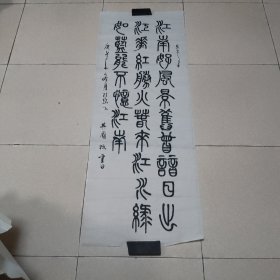 江南好風景舊曾諳日出
江花紅勝火春來江水綠
如藍能不憶江南